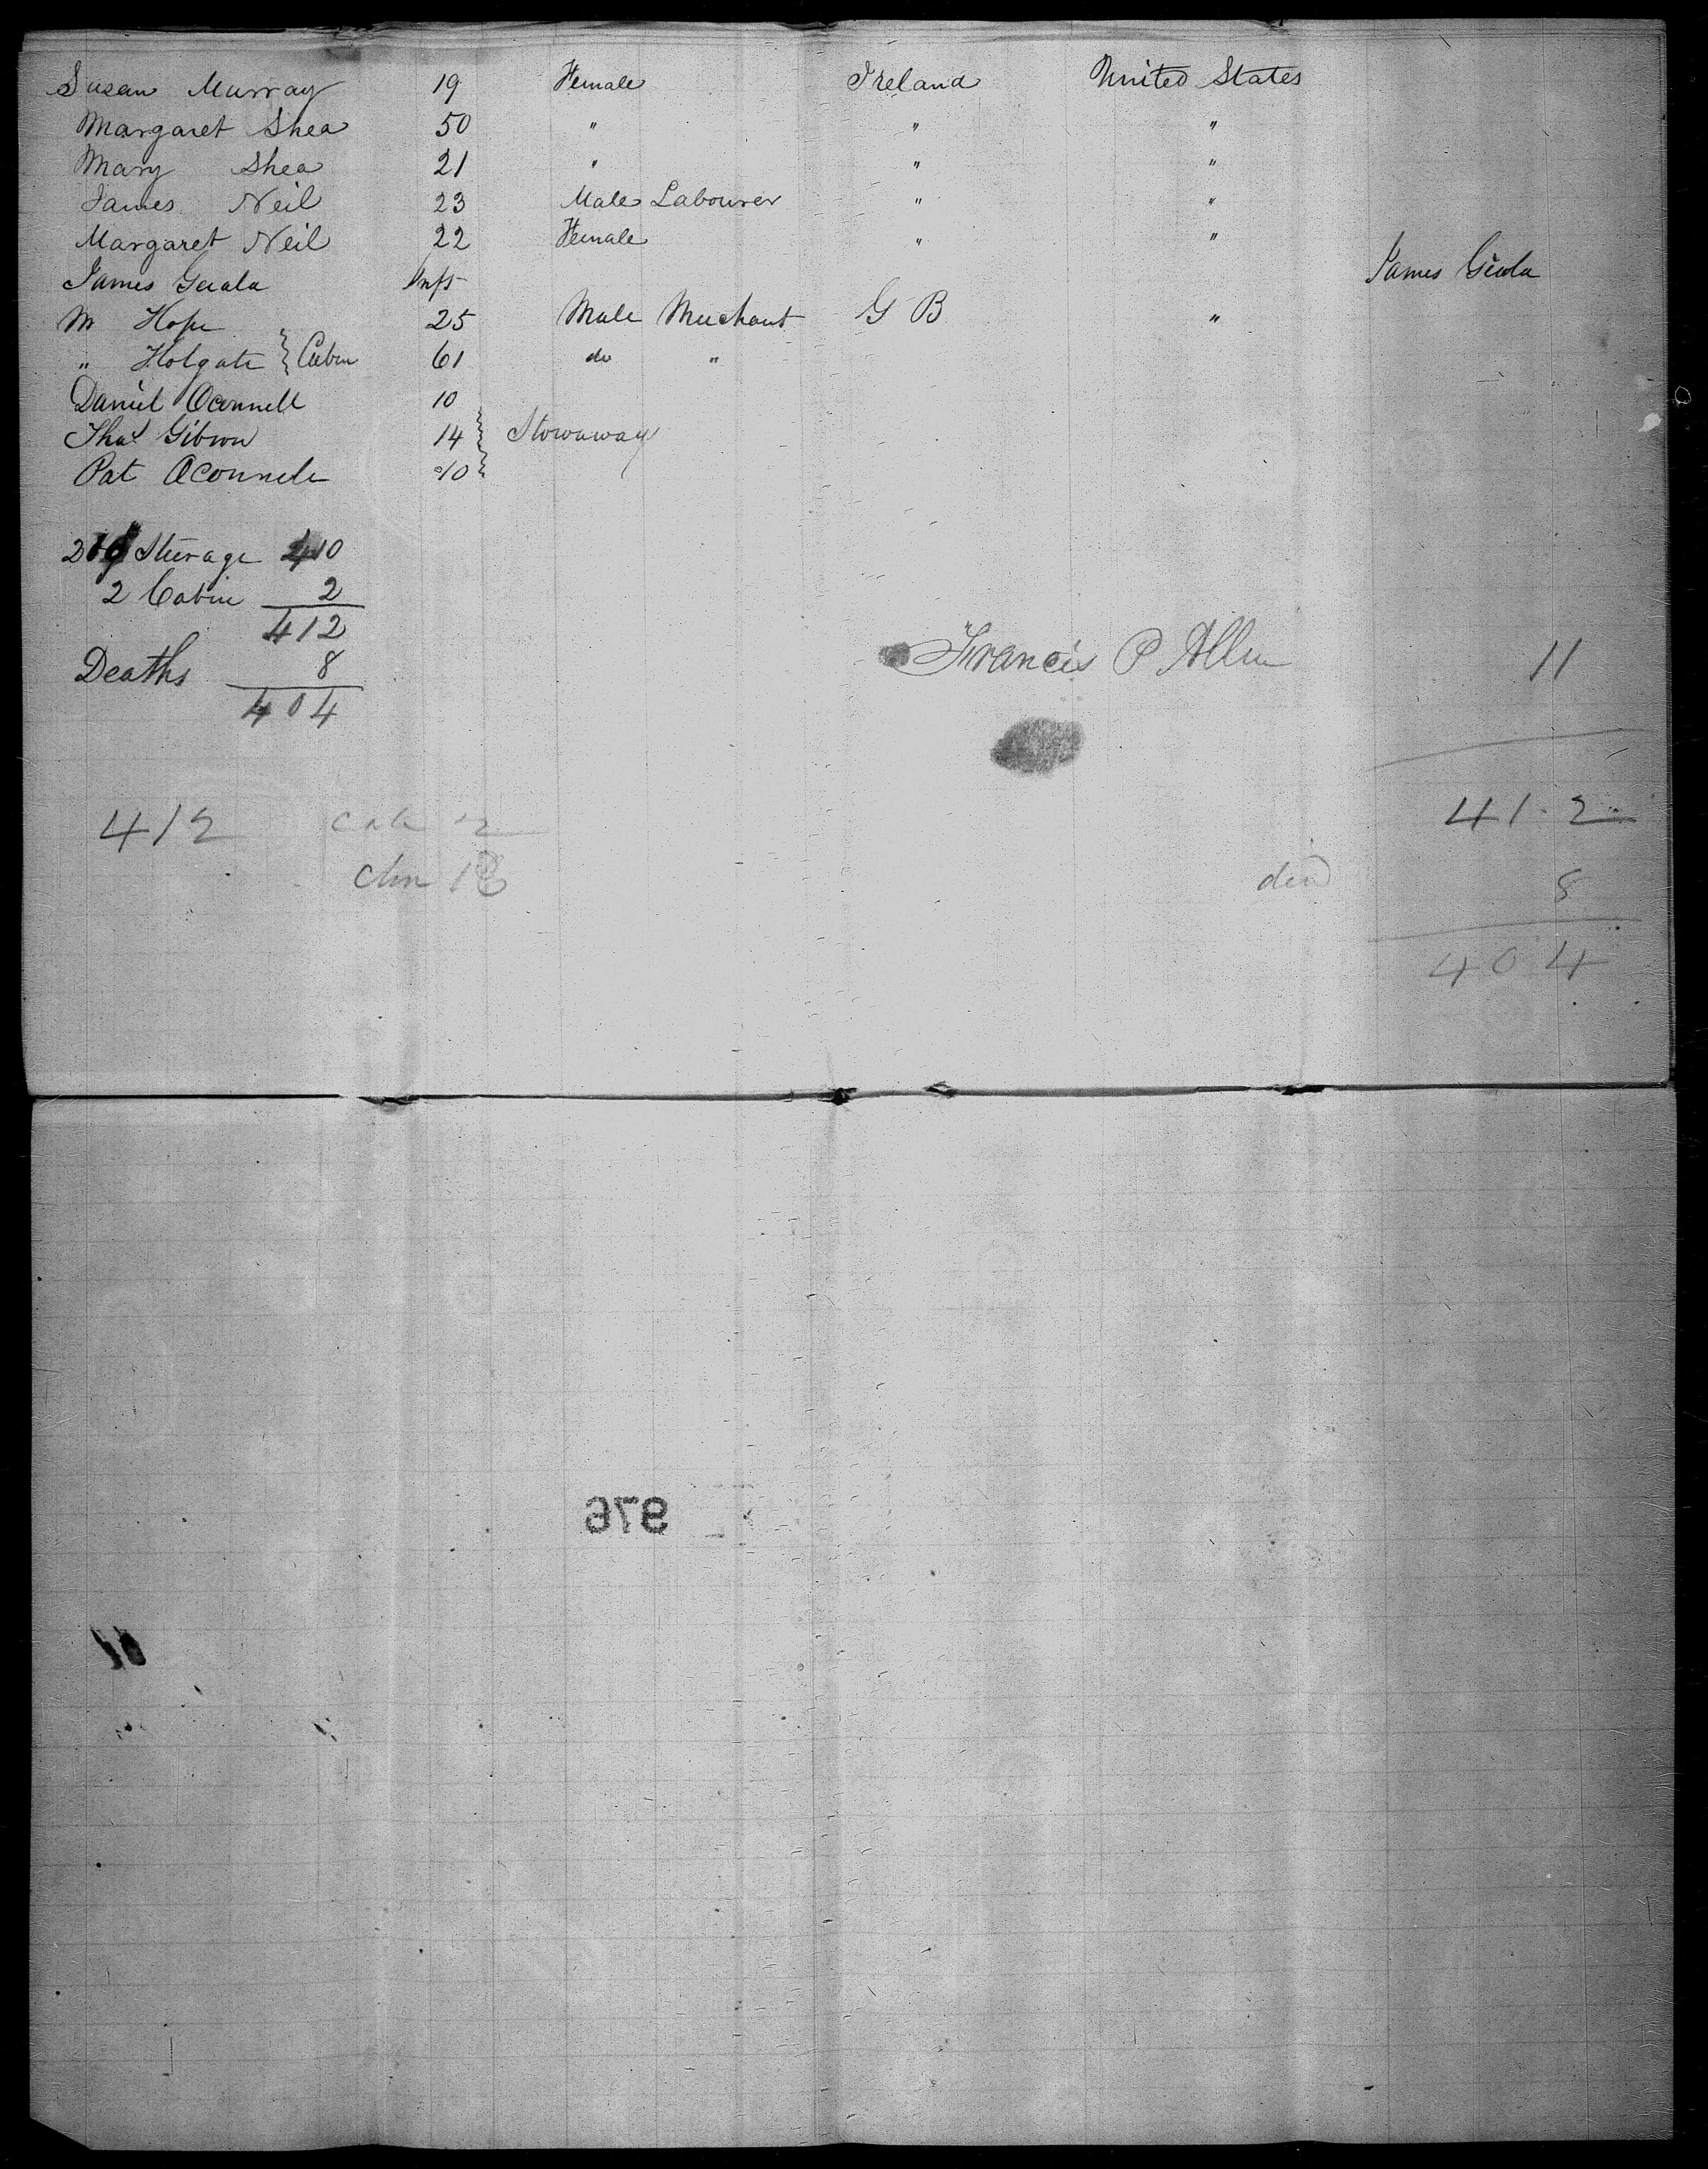 Susan Murray 19 Female Ireland United States
Margaret Shea 50 " " "
Mary Shea 21 " " "
James Neil 23 Male Labourer " "
Margaret Neil 22 Female " "
James Geula Inft James Geula
Mr Hope 25 Male Merchant G B "
" Holgate } Cabin 61 do "
Daniel Oconnell 10
Thos Gibson 14 } Stowaway
Pat Oconnell 10
Steerage 410
2 Cabin 2
412
Francis P Allen 11
Deaths 8
404
412 412
died 8
404
976